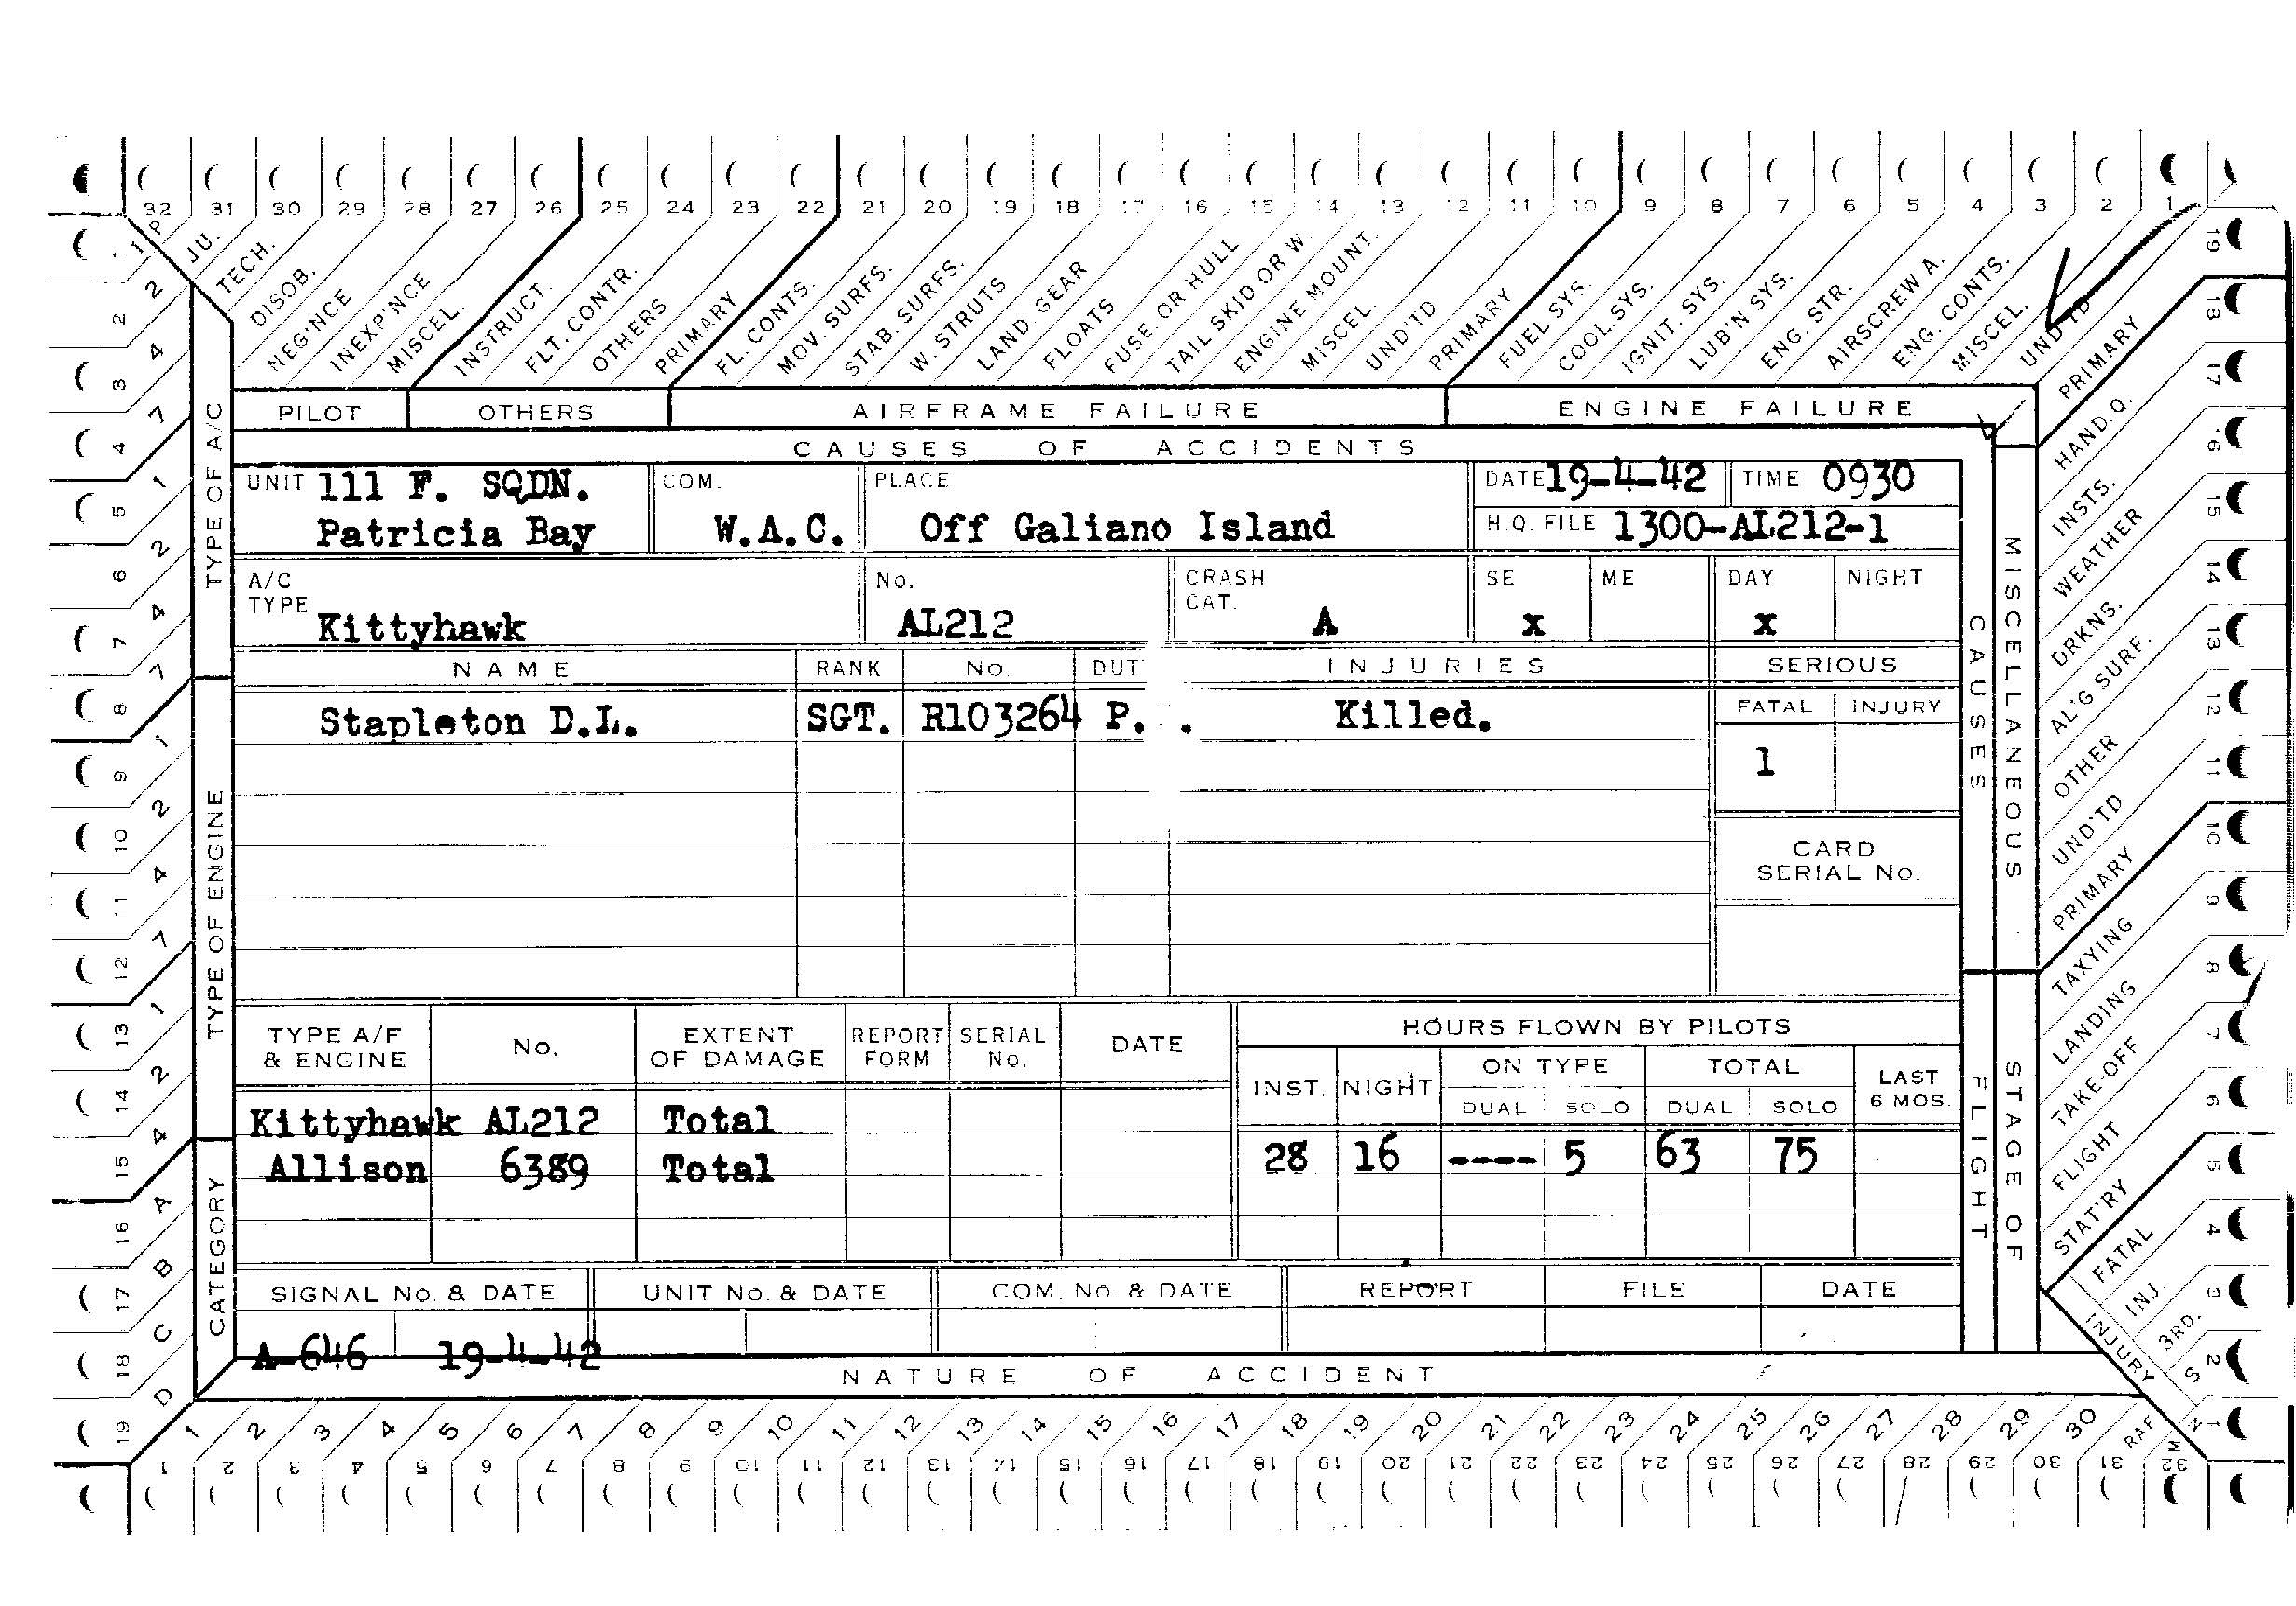 32 31 30 29 28 27 26 25 24 23 22 21 20 19 18 17 16 15 14 13 12 11 10 9 8 7 6 5 4 3 2 1
P. JU. TECH. DISOB. NEG'NCE INEXP'NCE MISCEL. INSTRUCT. FLT. CONTR. OTHERS PRIMARY FL. CONTS. MOV. SURFS. STAB. SURFS. W. STRUTS LAND. GEAR FLOATS FUSE. OR HULL TAIL SKID OR W. ENGINE MOUNT. MISCEL. UND'TD PRIMARY FUEL SYS. COOL. SYS. IGNIT. SYS. LUB'N SYS. ENG. STR. AIRSCREW A. ENG. CONTS. MISCEL. UND'TD PRIMARY
PILOT OTHERS AIRFRAME FAILURE ENGINE FAILURE
CAUSES OF ACCIDENTS
UNIT 111 F. SQDN. COM. PLACE DATE 19-4-42 TIME 0930
Patricia Bay W.A.C. Off Galiano Island H.Q. FILE 1300-AL212-1
A/C TYPE No. CRASH CAT. SE ME DAY NIGHT
Kittyhawk AL212 A x x
NAME RANK No. DUT INJURIES SERIOUS
Stapleton D.L. SGT. R103264 P. . Killed. FATAL INJURY
1
CARD
SERIAL No.
TYPE A/F & ENGINE No. EXTENT OF DAMAGE REPORT FORM SERIAL No. DATE HOURS FLOWN BY PILOTS
INST. NIGHT ON TYPE TOTAL LAST 6 MOS.
DUAL SOLO DUAL SOLO
Kittyhawk AL212 Total
Allison 6389 Total 28 16 ---- 5 63 75
SIGNAL No. & DATE UNIT No. & DATE COM. No. & DATE REPORT FILE DATE
A-646 19-4-42
NATURE OF ACCIDENT
1 2 3 4 5 6 7 8 9 10 11 12 13 14 15 16 17 18 19 20 21 22 23 24 25 26 27 28 29 30 RAF
1 2 3 4 5 6 7 8 9 10 11 12 13 14 15 16 17 18 19 20 21 22 23 24 25 26 27 28 29 30 31 32
TYPE OF A/C
TYPE OF ENGINE
CATEGORY
1 2 4 7 1 2 4 7 1 2 4 7 1 2 4 A B C D
1 2 3 4 5 6 7 8 9 10 11 12 13 14 15 16 17 18 19
MISCELLANEOUS
CAUSES
STAGE OF
FLIGHT
HAND. Q. INSTS. WEATHER DRKNS. AL'G SURF. OTHER UND'TD PRIMARY TAXYING LANDING TAKE-OFF FLIGHT STAT'RY FATAL INJ. 3RD. S
INJURY
19 18 17 16 15 14 13 12 11 10 9 8 7 6 5 4 3 2 1